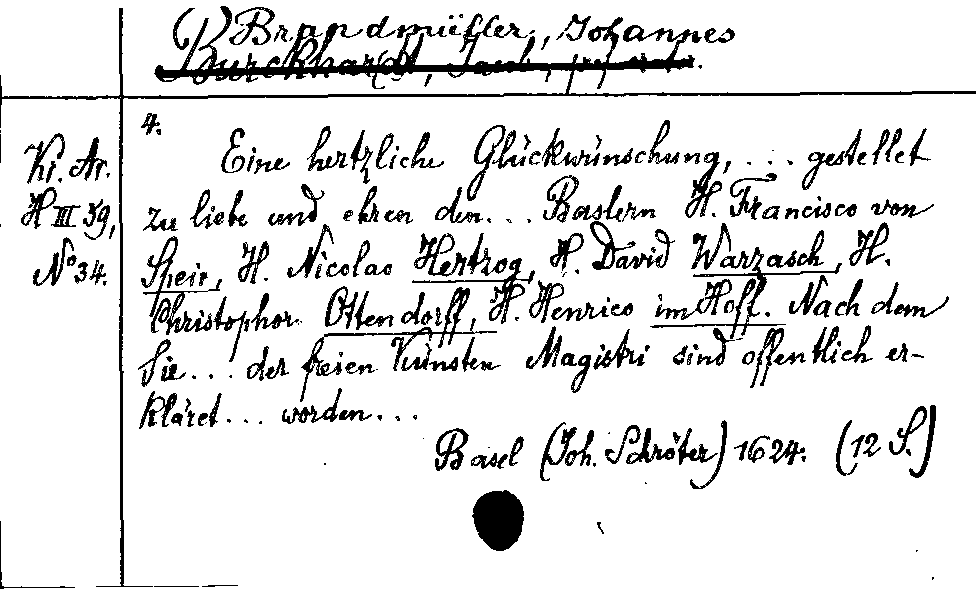 Brandmüller, Johannes
Burckhardt,
4.
Eine hertzliche Glückwünschung, ... gestellet
Ki. Ar.
H III 39,
No 34.
zu liebe und ehren den... Baslern H. Francisco von
Speir, H. Nicolao Hertzog, H. David Warzasch, H.
Christophor Ottendorff, H. Henrico im Hoff. Nach dem
Sie... der freien Künsten Magistri sind offentlich er-
kläret... worden...
Basel (Joh. Schröter) 1624. (12 S.)